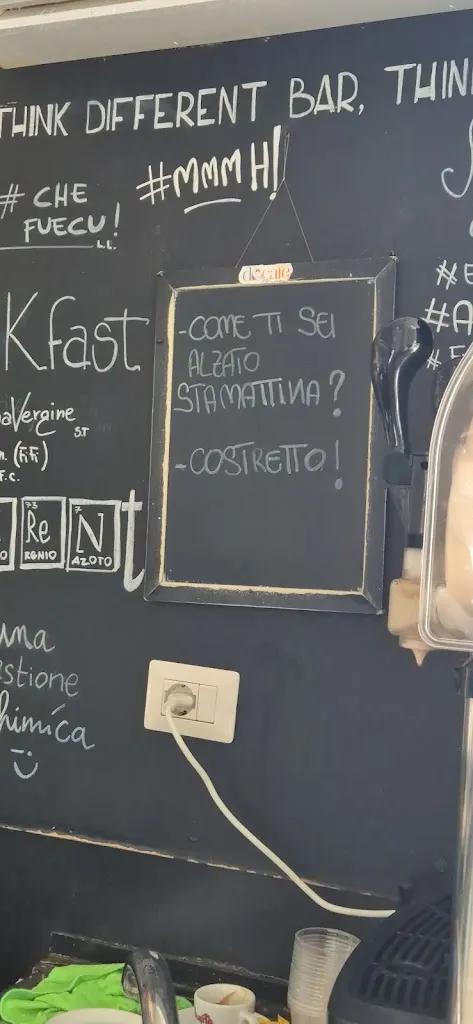 THINK DIFFERENT BAR, THIN
#MMMH!
# CHE
FUECU!
L.L.
Kfast
aVergine
S.T
F.C.
docafè
-COME TI SEI
ALZATO
STAMATTINA?
-COSTRETTO!
#E
#A
Re
RENIO
7
N
AZOTO
t
una
stione
himica